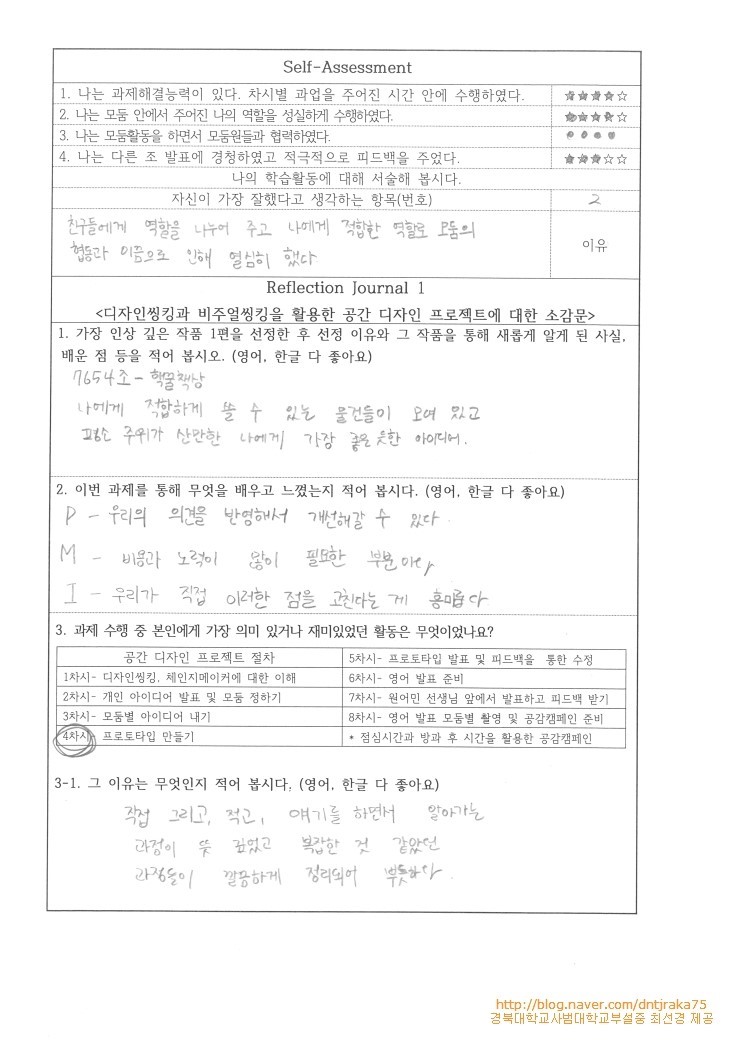 Self-Assessment
1. 나는 과제해결능력이 있다. 차시별 과업을 주어진 시간 안에 수행하였다. ★★★★☆
2. 나는 모둠 안에서 주어진 나의 역할을 성실하게 수행하였다. ★★★★☆
3. 나는 모둠활동을 하면서 모둠원들과 협력하였다. ● ● ● ●
4. 나는 다른 조 발표에 경청하였고 적극적으로 피드백을 주었다. ★★★☆☆
나의 학습활동에 대해 서술해 봅시다.
자신이 가장 잘했다고 생각하는 항목(번호) 2
친구들에게 역할을 나누어 주고 나에게 적합한 역할로 모둠의
협동과 이끔으로 인해 열심히 했다
이유
Reflection Journal 1
<디자인씽킹과 비주얼씽킹을 활용한 공간 디자인 프로젝트에 대한 소감문>
1. 가장 인상 깊은 작품 1편을 선정한 후 선정 이유와 그 작품을 통해 새롭게 알게 된 사실,
배운 점 등을 적어 봅시오. (영어, 한글 다 좋아요)
7654조 - 핵꿀책상
나에게 적합하게 쓸 수 있는 물건들이 모여 있고
평소 주위가 산만한 나에게 가장 좋은 듯한 아이디어.
2. 이번 과제를 통해 무엇을 배우고 느꼈는지 적어 봅시다. (영어, 한글 다 좋아요)
P - 우리의 의견을 반영해서 개선해갈 수 있다.
M - 비용과 노력이 많이 필요한 부분이다
I - 우리가 직접 이러한 점을 고친다는 게 흥미롭다
3. 과제 수행 중 본인에게 가장 의미 있거나 재미있었던 활동은 무엇이었나요?
공간 디자인 프로젝트 절차
1차시- 디자인씽킹, 체인지메이커에 대한 이해
2차시- 개인 아이디어 발표 및 모둠 정하기
3차시- 모둠별 아이디어 내기
4차시- 프로토타입 만들기
5차시- 프로토타입 발표 및 피드백을 통한 수정
6차시- 영어 발표 준비
7차시- 원어민 선생님 앞에서 발표하고 피드백 받기
8차시- 영어 발표 모둠별 촬영 및 공감캠페인 준비
* 점심시간과 방과 후 시간을 활용한 공감캠페인
3-1. 그 이유는 무엇인지 적어 봅시다. (영어, 한글 다 좋아요)
직접 그리고, 적고, 얘기를 하면서 알아가는
과정이 뜻 깊었고 복잡한 것 같았던
과정들이 깔끔하게 정리되어 뿌듯하다.
http://blog.naver.com/dntjraka75
경북대학교사범대학교부설중 최선경 제공